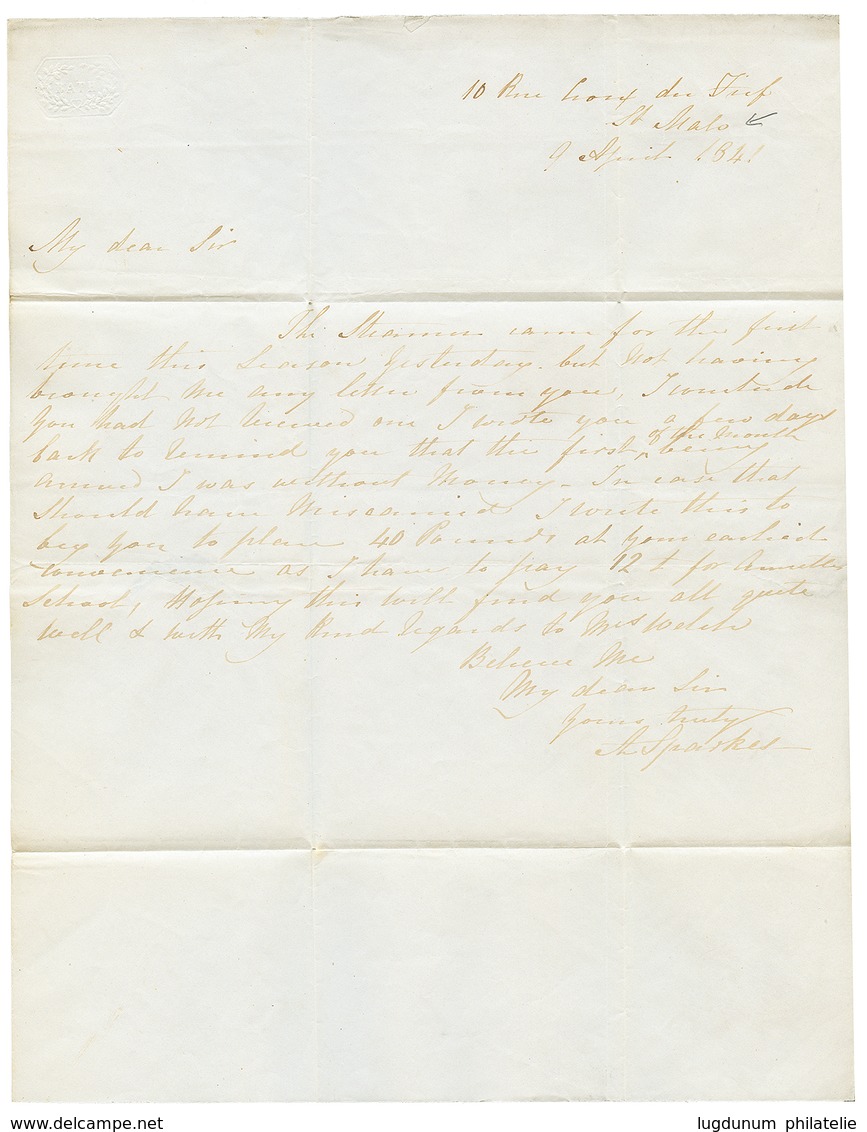 BATH
10 Rue Croix du Fief
St Malo
9 April 1841
My dear Sir
The Steamer came for the first
time this Season Yesterday. but Not having
brought Me any letter from you, I conclude
You had Not received one I wrote you a few days
back to remind you that the first of the Month being
arrived I was without Money. In case that
Should have Miscarried I write this to
beg you to place 40 Pounds at your earliest
convenience as I have to pay 12 £ for
School, Hoping this will find you all quite
well & with My Kind regards to Mrs Welch
Believe Me
My dear Sir
Yours truly
A Sparkes
www.delcampe.net
lugdunum philatelie